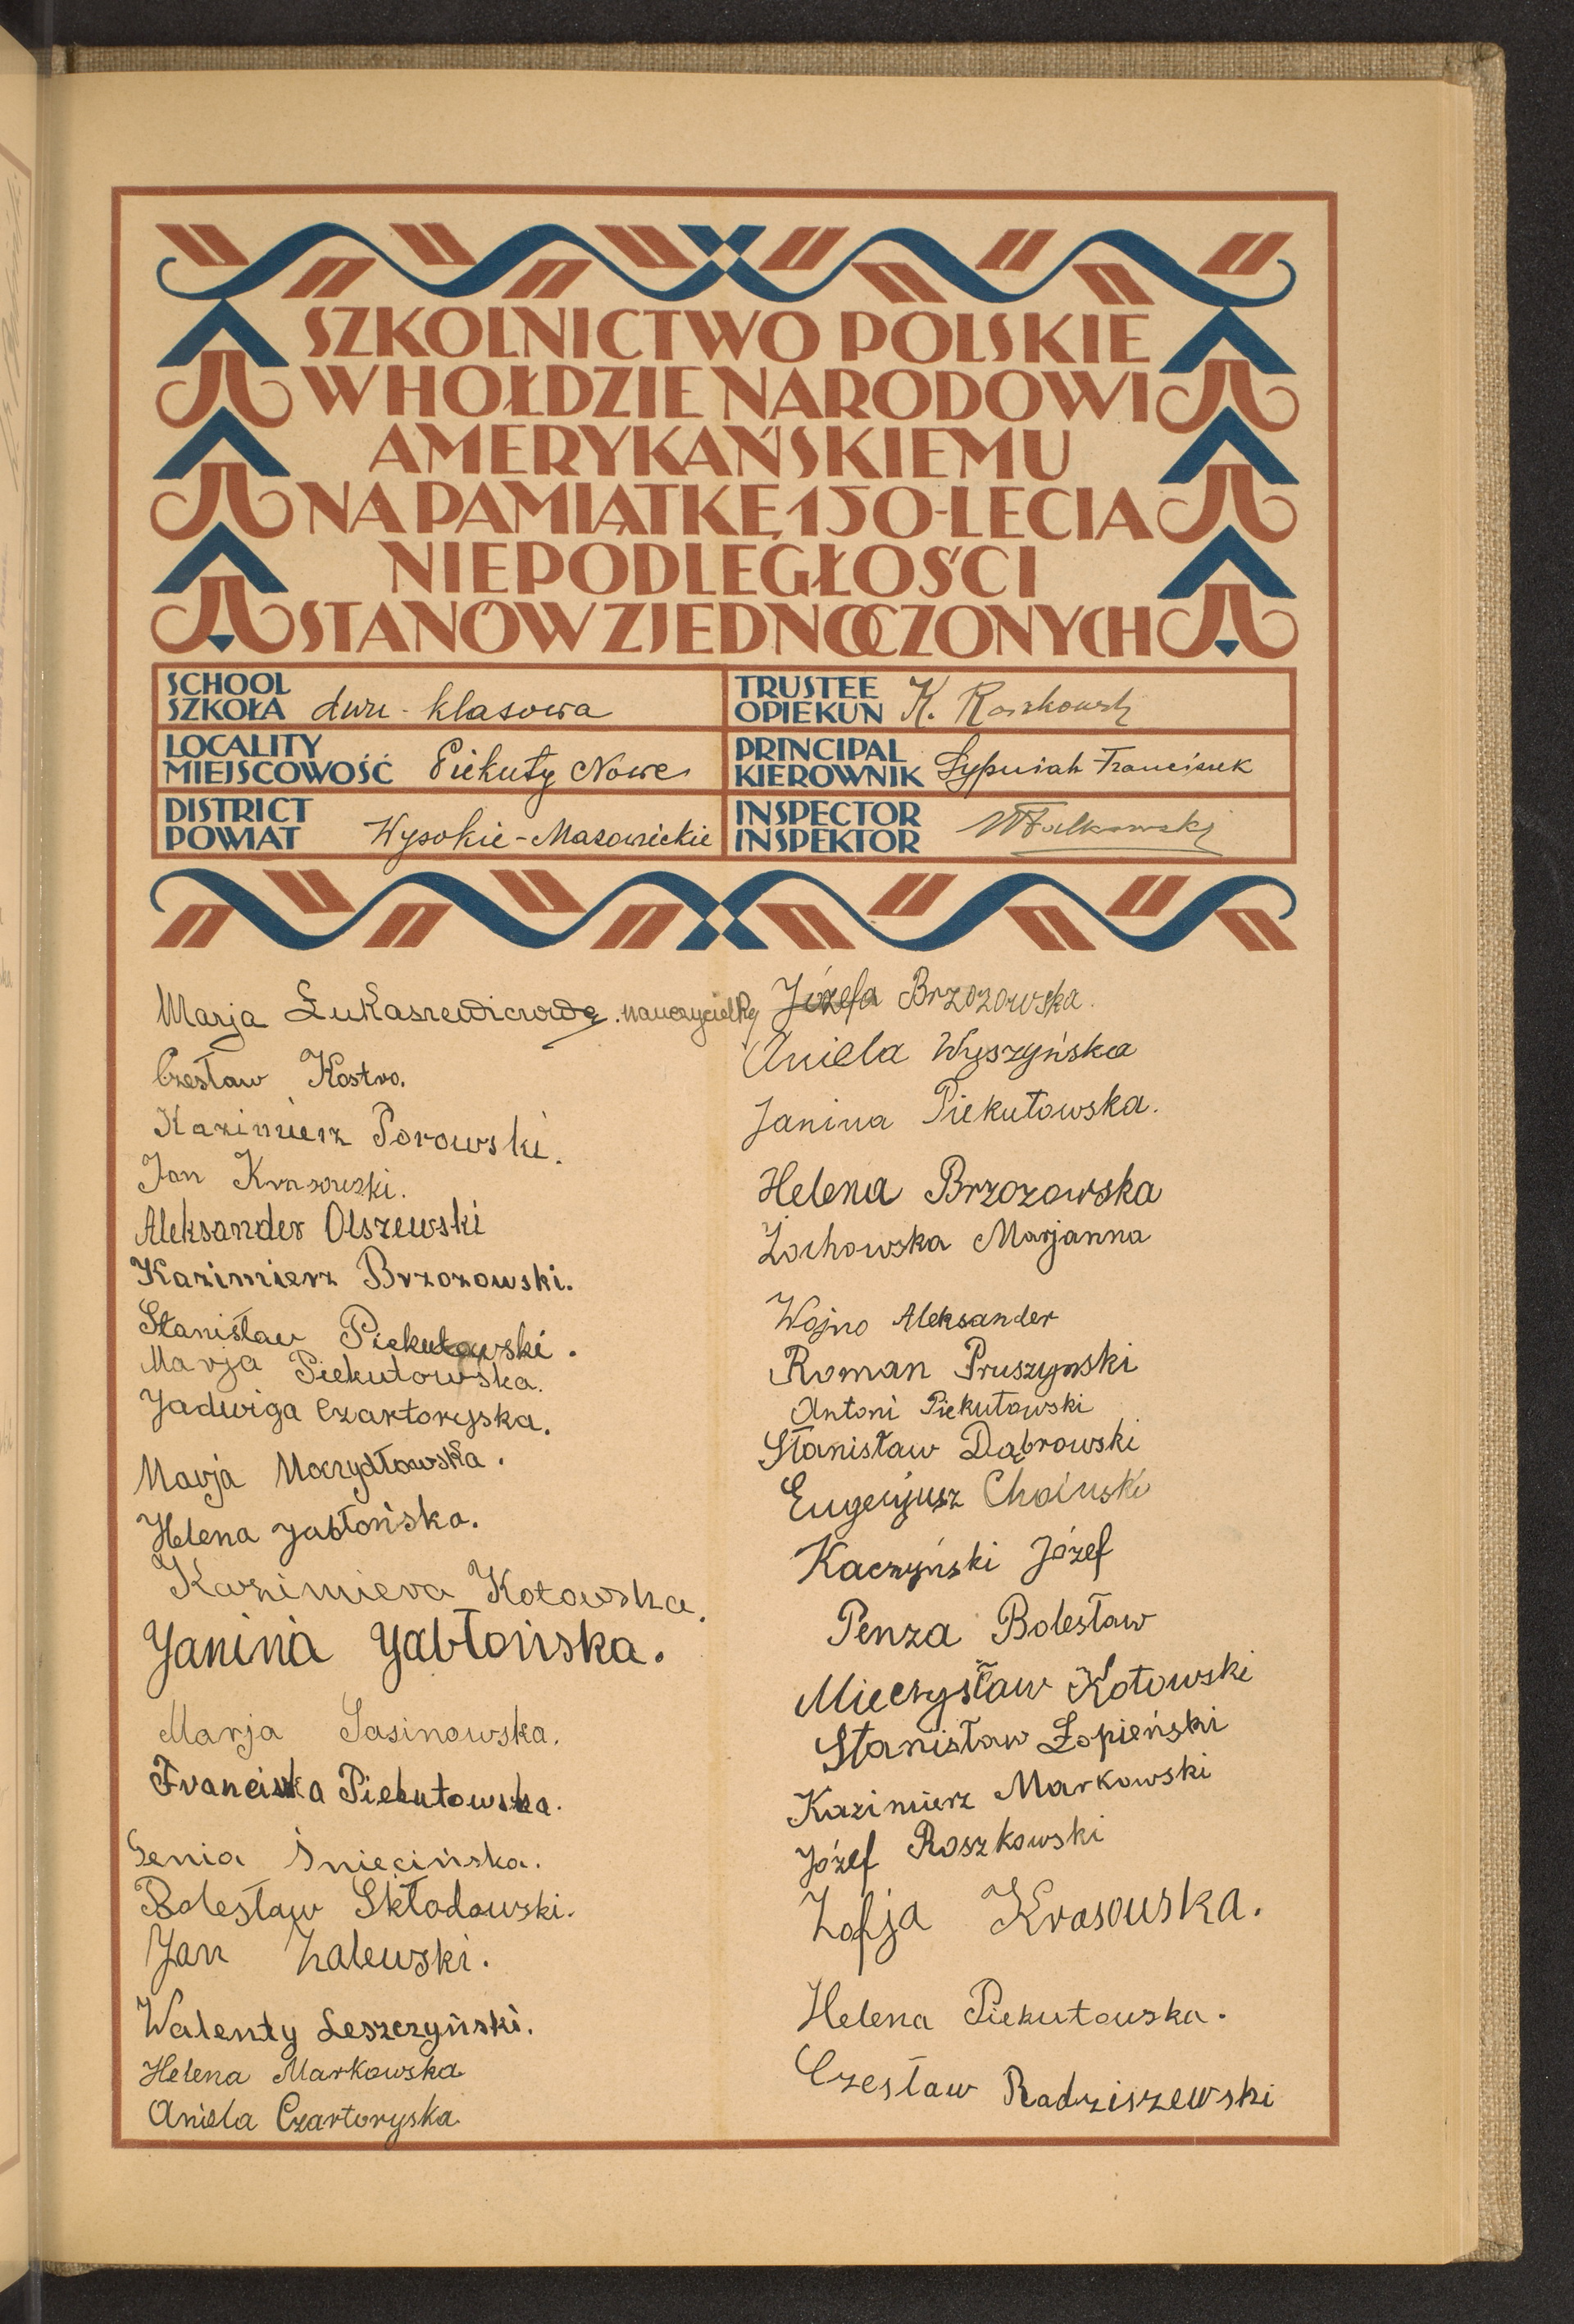 SZKOLNICTWO POLSKIE
W HOŁDZIE NARODOWI
AMERYKAŃSKIEMU
NA PAMIĄTKĘ 150-LECIA
NIEPODLEGŁOŚCI
STANÓW ZJEDNOCZONYCH
SCHOOL
SZKOŁA dwu-klasowa
TRUSTEE
OPIEKUN K. Roszkowski
LOCALITY
MIEJSCOWOŚĆ Piekuty Nowe
PRINCIPAL
KIEROWNIK Sypniak Franciszek
DISTRICT
POWIAT Wysokie-Mazowieckie
INSPECTOR
INSPEKTOR WFalkowski
Marja Łukaszewiczowa. nauczycielka
Czesław Kostro.
Kazimierz Porowski.
Jan Krasowski.
Aleksander Olszewski
Kazimierz Brzozowski.
Stanisław Piekutowski.
Marja Piekutowska.
Jadwiga Czartoryska.
Marja Moczydłowska.
Helena Jabłońska.
Kazimiera Kotowska.
Janina Jabłońska.
Marja Sasinowska.
Franciszka Piekutowska.
Genia Śniecińska.
Bolesław Skłodowski.
Jan Zalewski.
Walenty Leszczyński.
Helena Markowska
Aniela Czartoryska
Józefa Brzozowska.
Aniela Wyszyńska
Janina Piekutowska.
Helena Brzozowska
Żochowska Marjanna
Wojno Aleksander
Roman Pruszyński
Antoni Piekutowski
Stanisław Dąbrowski
Eugenjusz Choiński
Kaczyński Józef
Penza Bolesław
Mieczysław Kotowski
Stanisław Łopieński
Kazimierz Markowski
Józef Roszkowski
Zofja Krasowska.
Helena Piekutowska.
Czesław Radziszewski